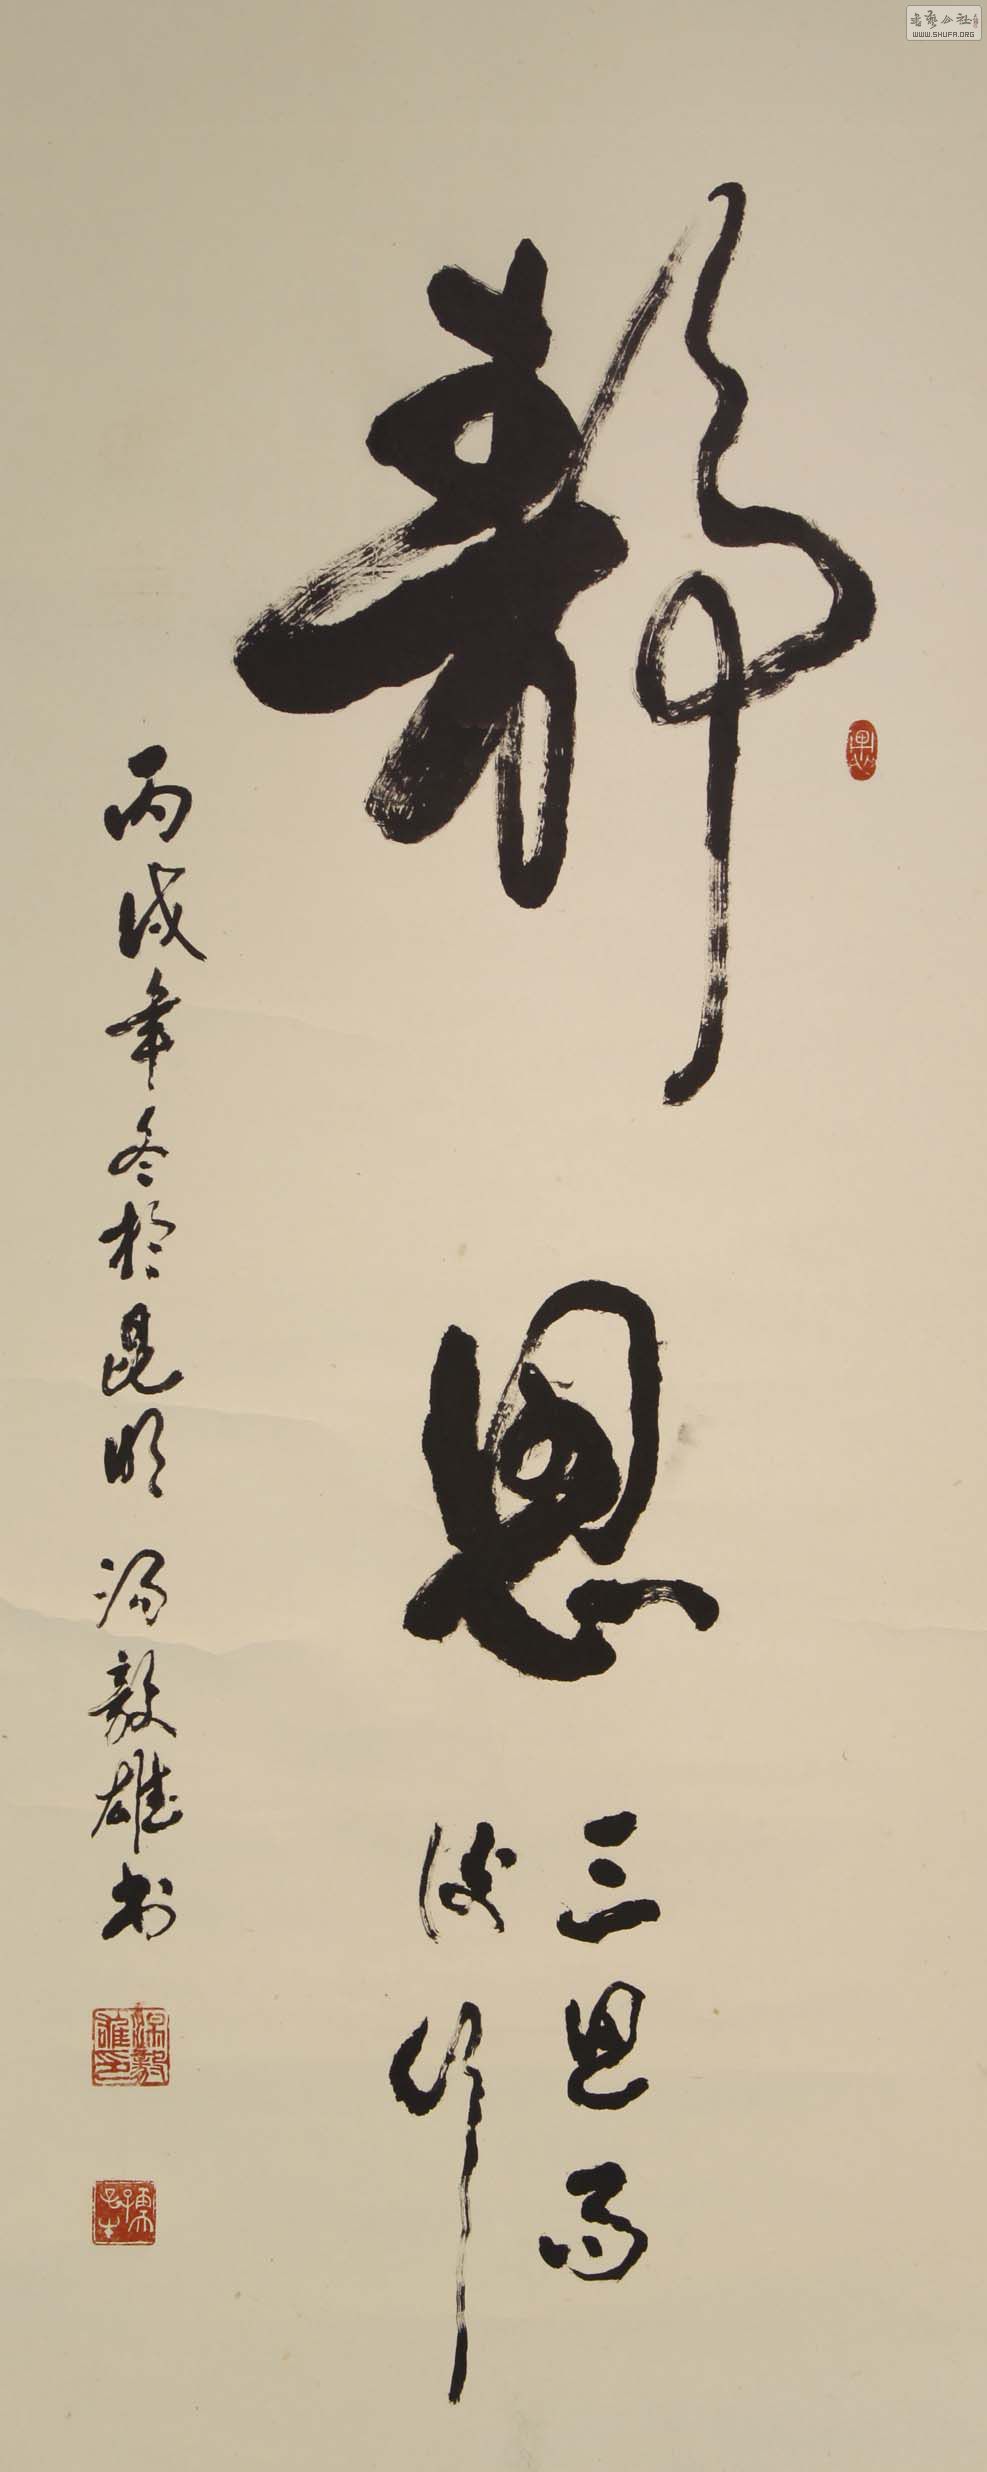 書藝公社
WWW.SHUFA.ORG
靜思
三思而
後行
丙戌年冬於昆明 湯毅雄书